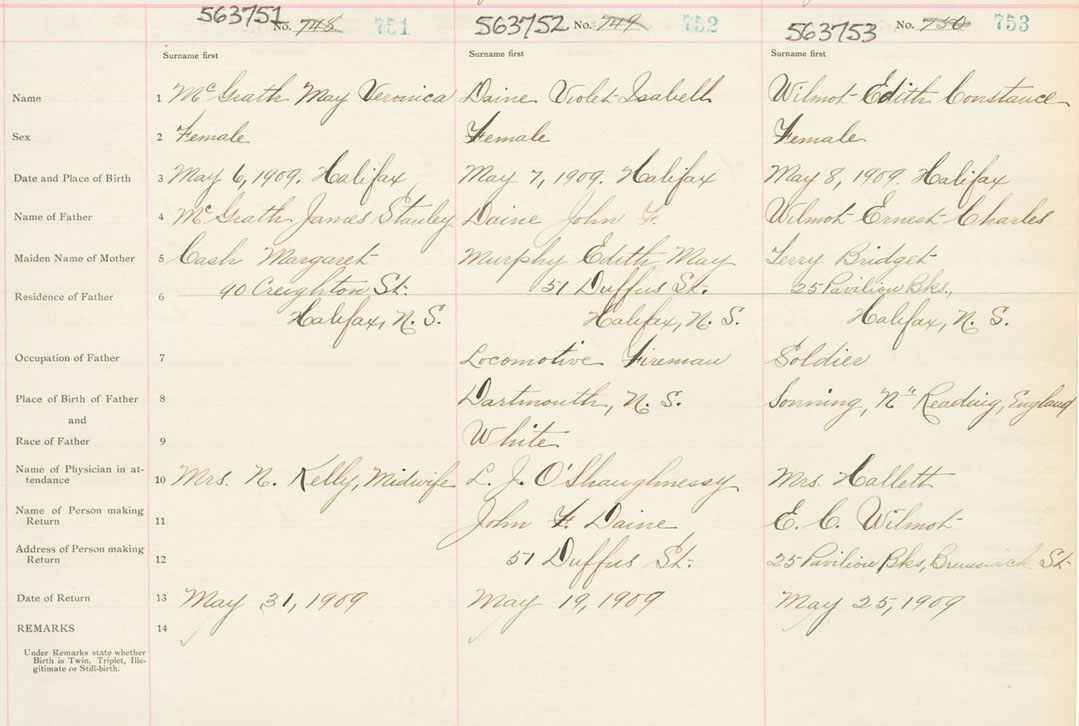 563751 No. 748 751 563752 No. 749 752 563753 No. 750 753
Surname first Surname first Surname first
Name 1 McGrath May Veronica Daine Violet Isabell Wilmot Edith Constance
Sex 2 Female Female Female
Date and Place of Birth 3 May 6, 1909. Halifax May 7, 1909. Halifax May 8, 1909. Halifax
Name of Father 4 McGrath James Stanley Daine John F. Wilmot Ernest Charles
Maiden Name of Mother 5 Cash Margaret Murphy Edith May Terry Bridget
Residence of Father 6 90 Creighton St. 51 Duffus St. 25 Pavilion Bks.,
Halifax, N. S. Halifax, N. S. Halifax, N. S.
Occupation of Father 7 Locomotive Fireman Soldier
Place of Birth of Father 8 Dartmouth, N. S. Sonning, Nr Reading, England
and
Race of Father 9 White
Name of Physician in at-
tendance 10 Mrs. N. Kelly, Midwife L. J. O'Shaughnessy Mrs. Hallett
Name of Person making
Return 11 John F. Daine E. C. Wilmot
Address of Person making
Return 12 51 Duffus St. 25 Pavilion Bks, Brunswick St.
Date of Return 13 May 31, 1909 May 19, 1909 May 25, 1909
REMARKS 14
Under Remarks state whether
Birth is Twin. Triplet, Ille-
gitimate or Still-birth.